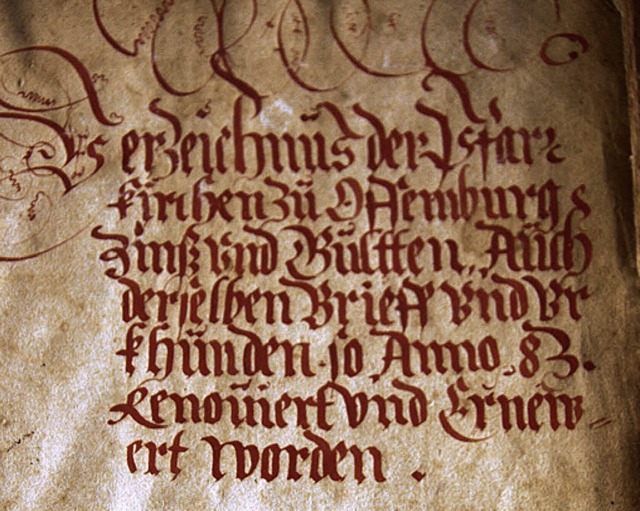 Verzeichnüs der Pfar=
kirchen zü Offemburg
Zinß vnd Gültten, Aüch
derselben Brieff vnd Vr
khünden so Anno 83.
Renoüiert vnd Ernew=
ert worden.